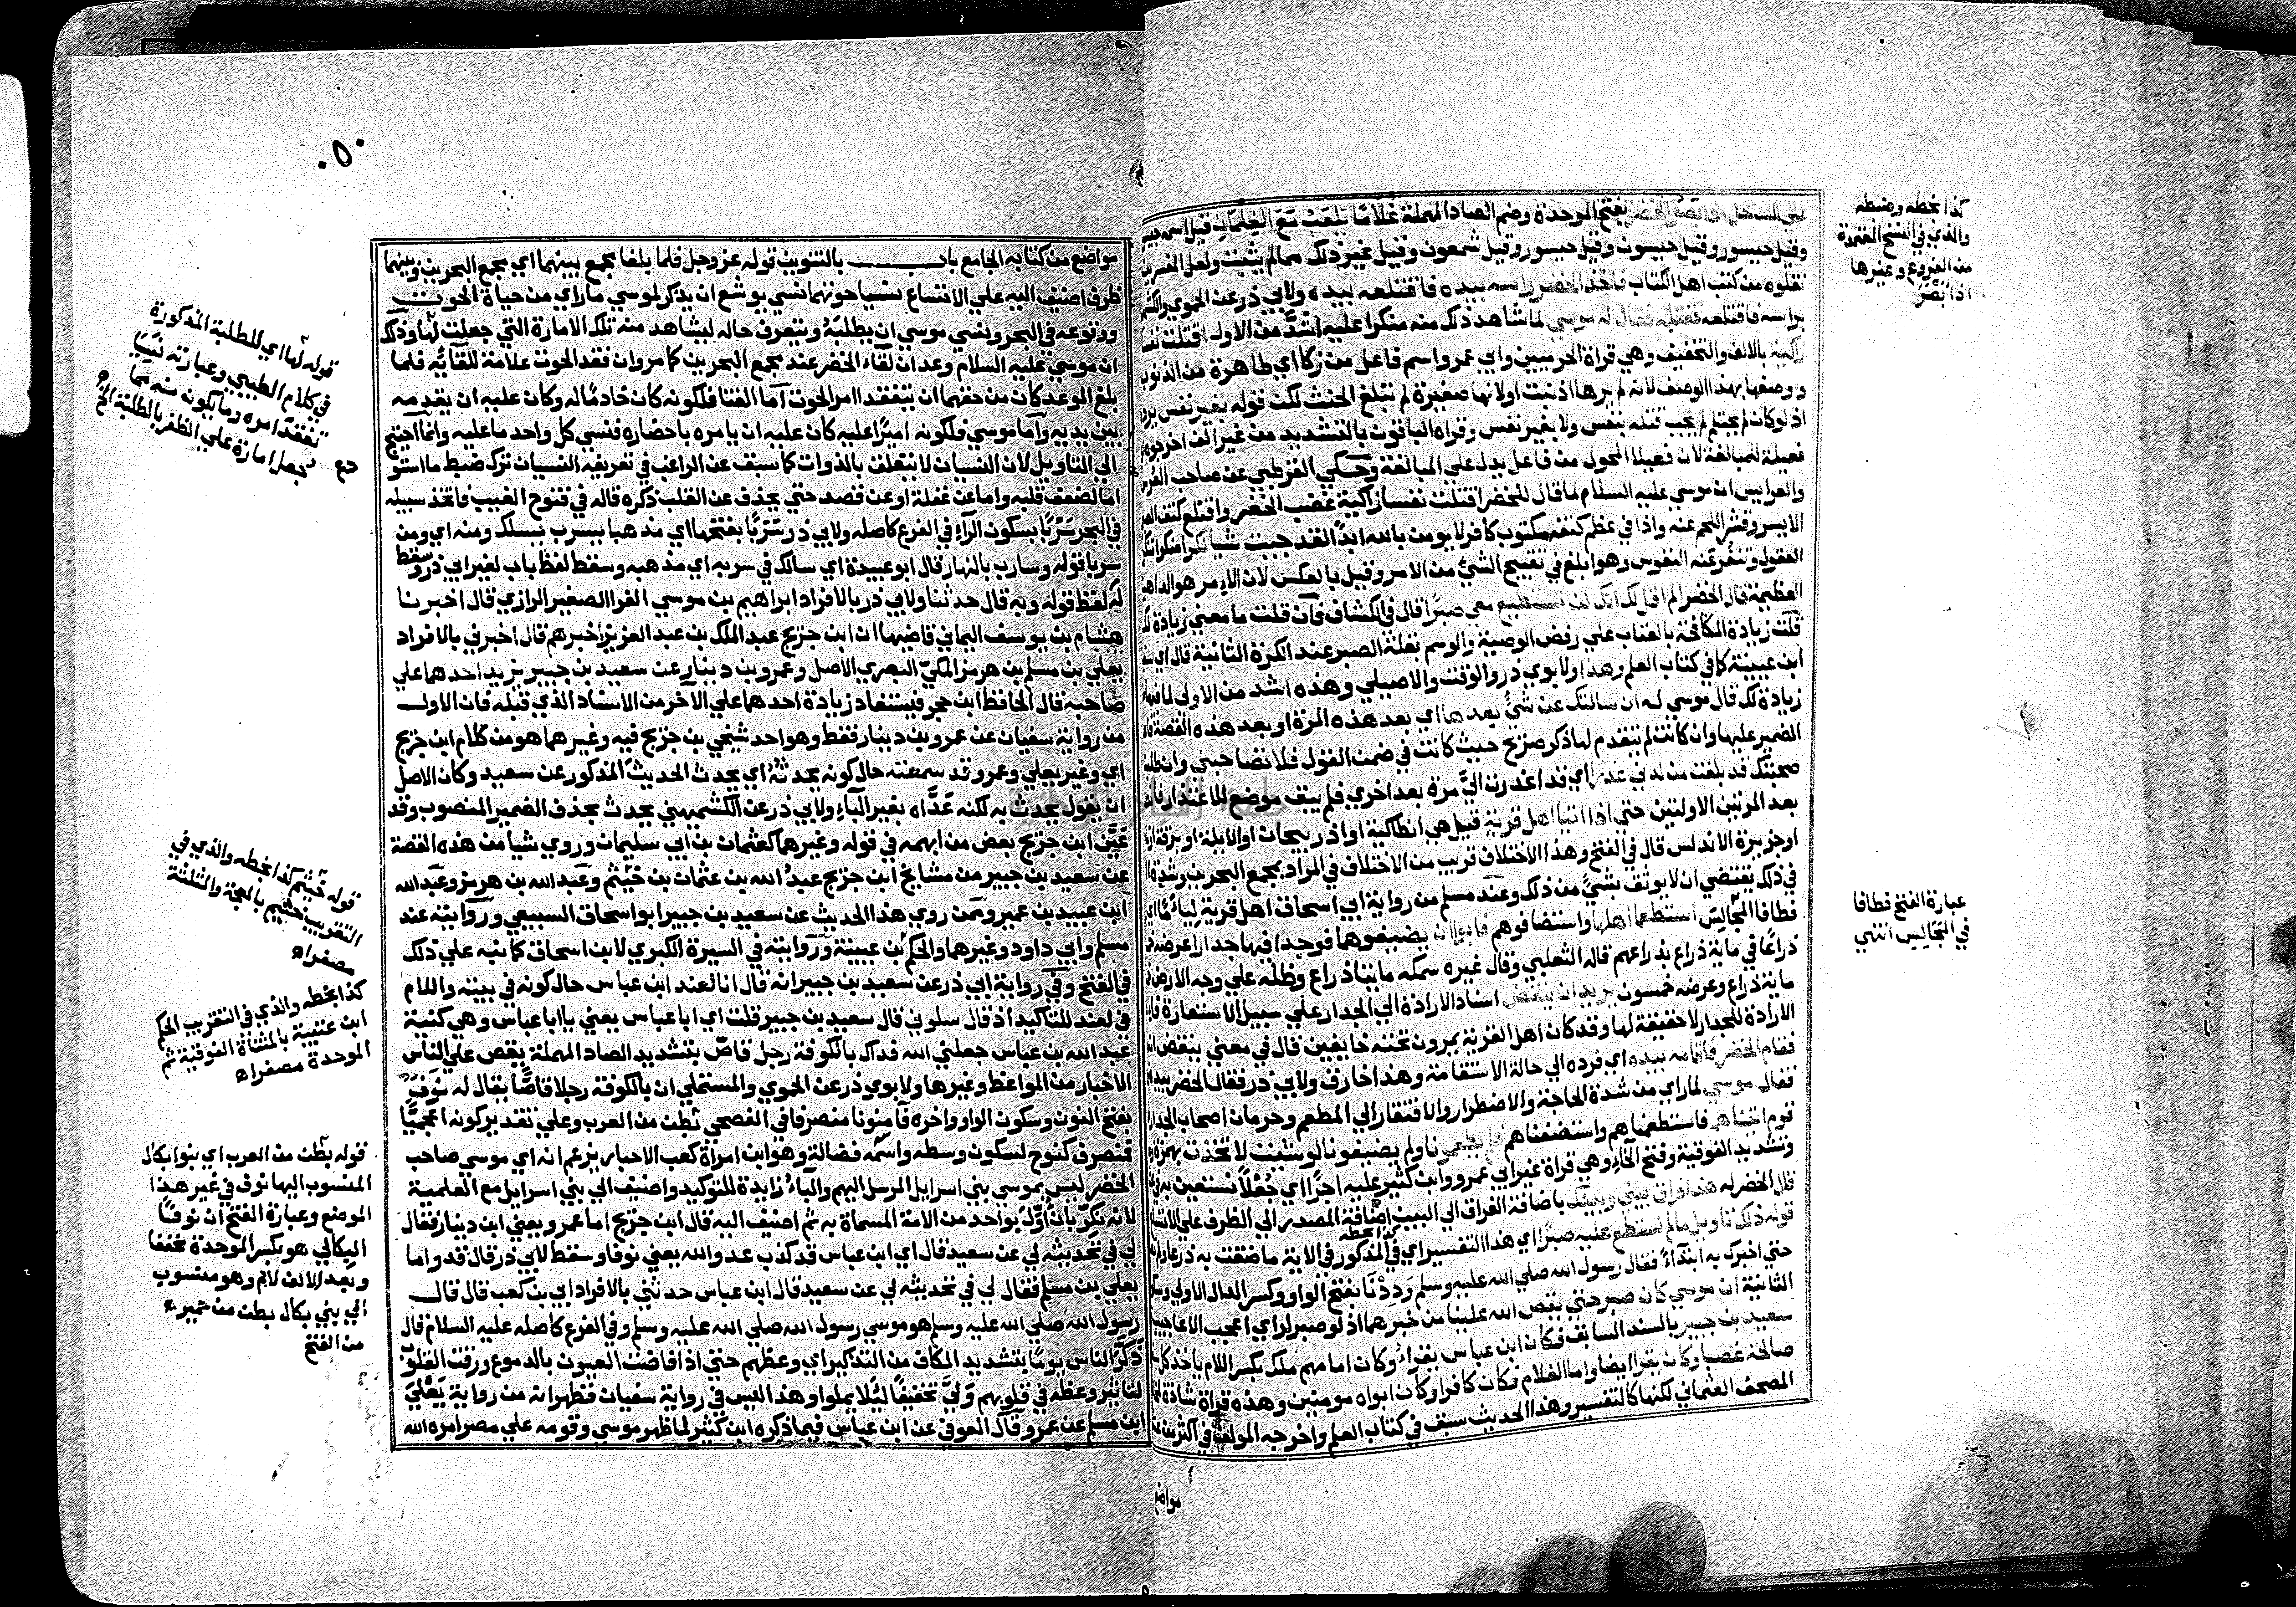 على الساحل اذا بصر الخضر بفتح الموحدة وضم الصاد المهملة غلاما يلعب مع الغلمان قيل اسمه
وقيل حيسور وقيل حيسون وقيل جيسور وقيل شمعون وقيل غير ذلك مما لم يثبت ولعل المفسرين
نقلوه من كتب اهل الكتاب فاخذ الخضر راسه بيده فاقتلعه بيده ولابي ذر عن الحموي
براسه فاقتلعه فقتله فقال له موسي لما شاهد ذلك منه منكرا عليه اشد من الاول اقتلت
زكية بالالف والتخفيف وهي قراة الحرميين وابي عمرو اسم فاعل من زكا اي طاهرة من الذنوب
ووصفها بهذا الوصف لانه لم يرها اذنبت او لانها صغيرة لم تبلغ الحنث لكن قوله بغير نفس
اذ لو كان لم يحتلم لم يجب قتله بنفس ولا بغير نفس وقراه الباقون بالتشديد من غير الف
فعيلة للمبالغة لان فعيلا المحول من فاعل يدل علي المبالغة وحكي القرطبي عن صاحب
والعرايس ان موسي عليه السلام لما قال للخضر اقتلت نفسا زاكية غضب الخضر واقتلع كتف
الايسر وقشر اللحم عنه واذا في عظم كتفه مكتوب كافر لا يومن بالله ابدا لقد جيت شيا نكرا
العقول وتنفر عنه النفوس وهو ابلغ في تقبيح الشئ من الامر وقيل بالعكس لان الامر هو
العظيمة قال الخضر الم اقل لك انك لن تستطيع معي صبرا قال في الكشاف فان قلت ما معني زيادة
قلت زيادة المكافحة بالعتاب علي رفض الوصية والوسم بقلة الصبر عند الكرة الثانية قال
ابن عيينة كما في كتاب العلم وهذا ولابوي ذر والوقت والاصيلي وهذه اشد من الاولي
زيادة لك قال موسي له ان سالتك عن شئ بعدها اي بعد هذه المرة او بعد هذه القصة
الضمير عليها وان كانت لم يتقدم لها ذكر صريح حيث كانت في ضمن القول فلا تصاحبني وان
صحبتك قد بلغت من لدني عذرا اي قد اعذرت الي مرة بعد اخري فلم يبق موضع للاعتذار
بعد المرتين الاولتين حتي اذا اتيا اهل قرية قيل هي انطاكية او اذربيجان او الابلة او برقة
او جزيرة الاندلس قال في الفتح وهذا الاختلاف قريب من الاختلاف في المراد بمجمع البحرين
في ذلك يقتضي ان لا يوثق بشئ من ذلك وعند مسلم من رواية ابي اسحاق اهل قرية لياما
فطافا المجالس استطعما اهلها واستضافوهم فابوا ان يضيفوهما فوجدا فيها جدارا عرضه
ذراعا في ماية ذراع بذراعهم قاله الثعلبي وقال غيره سمكه مايتا ذراع وظله علي وجه الارض
ماية ذراع وعرضه خمسون يريد ان ينقض اسناد الارادة الي الجدار علي سبيل الاستعارة
الارادة للجدار لا حقيقة لها وقد كان اهل القرية يمرون تحته خايفين قال في معني ينقض
فقام الخضر فاقامه بيده اي فرده الي حالة الاستقامة وهذا خارق ولابي ذر فقال الخضر
فقال موسي لما راي من شدة الحاجة والاضطرار والافتقار الي المطعم وحرمان اصحاب
قوم اتيناهم فاستطعمناهم واستضفناهم فلم يطعمونا ولم يضيفونا لو شئت لاتخذت
وتشديد الفوقية وفتح الخاء وهي قراة غير ابي عمرو وابن كثير عليه اجرا اي جعلا نستعين به
قال الخضر له هذا فراق بيني وبينك باضافة الفراق الي البين اضافة المصدر الي الظرف علي
قوله ذلك تاويل ما لم تسطع عليه صبرا اي هذا التفسير اي في المذكور في الاية ما ضقت به ذرعا
كذا بخطه
حتي اخبرك به ابتداء فقال رسول الله صلي الله عليه وسلم وددنا بفتح الواو وكسر الدال الاولي
الثانية ان موسي كان صبر حتي يقص الله علينا من خبرهما اذ لو صبر لراي اعجب
سعيد بن جبير بالسند السابق فكان ابن عباس يقراء وكان امامهم ملك بكسر اللام ياخذ كل
صالحة غصبا وكان يقرا ايضا واما الغلام فكان كافرا وكان ابواه مومنين وهذه قراة شاذة
المصحف العثماني لكنها كالتفسير وهذا الحديث سبق في كتاب العلم واخرجه المولف في اكثر من
مواضع
كذا بخطه وضبطه
والذي في النسخ المعتمدة
من الفروع وغيرها
اذا بصر
عبارة الفتح فطافا
في المجالس انتهي
٥٠
مواضع من كتابه الجامع باب بالتنوين قوله عز وجل فلما بلغا مجمع بينهما اي مجمع البحرين وبينهما
ظرف اضيف اليه علي الاتساع نسيا حوتهما نسي يوشع ان يذكر لموسي ما راي من حياة الحوت
ووقوعه في البحر ونسي موسي ان يطلبه ويتعرف حاله ليشاهد منه تلك الامارة التي جعلت لها وذلك
ان موسي عليه السلام وعد ان لقاء الخضر عند مجمع البحرين كما مر وان فقد الحوت علامة للقايه فلما
بلغ الموعد كان من حقهما ان يتفقدا امر الحوت اما الفتا فلكونه كان خادما له وكان عليه ان يقدمه
بين يديه واما موسي فلكونه اميرا عليه كان عليه ان يامره باحضاره فنسي كل واحد ما عليه وانما احتيج
الي التاويل لان النسيان لا يتعلق بالذوات كما سبق عن الراغب في تعريفه النسيان ترك ضبط ما استو
اما لضعف قلبه واما عن غفلة او عن قصد حتي يحذف عن القلب ذكره قاله في فتوح الغيب فاتخذ سبيله
في البحر سربا بسكون الراء في الفرع كاصله ولابي ذر سربا بفتحها اي مذهبا يسرب يسلك ومنه اي ومن
سربا قوله وسارب بالنهار قال ابو عبيدة اي سالك في سربه اي مذهبه وسقط لفظ باب لغير ابي ذر وسقط
له لفظ قوله وبه قال حدثنا ولابي ذر بالافراد ابراهيم بن موسي الفرا الصغير الرازي قال اخبرنا
هشام بن يوسف اليماني قاضيها ان ابن جريج عبد الملك بن عبد العزيز اخبرهم قال اخبرني بالافراد
يعلي بن مسلم بن هرمز المكي البصري الاصل وعمرو بن دينار عن سعيد بن جبير يزيد احدهما علي
صاحبه قال الحافظ ابن حجر فيستفاد زيادة احدهما علي الاخر من الاسناد الذي قبله فان الاول
من رواية سفيان عن عمرو بن دينار فقط وهو احد شيخي بن جريج فيه وغيرهما هو من كلام ابن جريج
اي وغير يعلي وعمرو قد سمعته حال كونه يحدثه اي يحدث الحديث المذكور عن سعيد وكان الاصل
ان يقول يحدث به لكنه عداه بغير الباء ولابي ذر عن الكشميهني يحدث بحذف الضمير المنصوب وقد
عين ابن جريج بعض من ابهمه في قوله وغيرهما كعثمان بن ابي سليمان وروي شيا من هذه القصة
عن سعيد بن جبير من مشايخ ابن جريج عبد الله بن عثمان بن خيثم وعبد الله بن هرمز وعبد الله
ابن عبيد بن عمير وممن روي هذا الحديث عن سعيد بن جبير ابو اسحاق السبيعي وروايته عند
مسلم وابي داود وغيرهما والحكم بن عيينة وروايته في السيرة الكبري لابن اسحاق كما نبه علي ذلك
في الفتح وفي رواية ابي ذر عن سعيد بن جبير انه قال انا لعند ابن عباس حال كونه في بيته واللام
في لعند للتاكيد اذ قال سلوني قال سعيد بن جبير قلت اي ابا عباس يعني يا ابا عباس وهي كنية
عبد الله بن عباس جعلني الله فداك بالكوفة رجل قاص بتشديد الصاد المهملة يقص علي الناس
الاخبار من المواعظ وغيرها ولابوي ذر عن الحموي والمستملي ان بالكوفة رجلا قاصا يقال له نوف
بفتح النون وسكون الواو واخره فا منونا منصرفا في الفصحي بطن من العرب وعلي تقدير كونه اعجميا
فتصرف كنوح لسكون وسطه واسمه فضالة وهو ابن امراة كعب الاحبار يزعم انه اي موسي صاحب
الخضر ليس بموسي بني اسرايل المرسل اليهم والباء زايدة للتوكيد واضيف الي بني اسرايل مع العلمية
لانه نكر بان اول بواحد من الامة المسماة به ثم اضيف اليه قال ابن جريج اما عمرو يعني ابن دينار فقال
لي في تحديثه لي عن سعيد قال اي ابن عباس قد كذب عدو الله يعني نوفا وسقط لابي ذر قال قد واما
يعلي بن مسلم فقال لي في تحديثه لي عن سعيد قال ابن عباس حدثني بالافراد ابي بن كعب قال قال
رسول الله صلي الله عليه وسلم هو موسي رسول الله صلي الله عليه وسلم وفي الفرع كاصله عليه السلام قال
ذكر الناس يوما بتشديد الكاف من التذكير اي وعظهم حتي اذا فاضت العيون بالدموع ورقت القلوب
لتاثير وعظه في قلوبهم ولي تخفيفا ليلا يملوا وهذا ليس في رواية سفيان فظهر انه من رواية يعلي
ابن مسلم عن عمرو وقال العوفي عن ابن عباس فيما ذكره ابن كثير لما ظهر موسي وقومه علي مصر امره الله
قوله لها اي للطلبة المذكورة
في كلام الطيبي وعبارته نسيا
تفقد امره وما يكون منه مما
جعل امارة علي الظفر بالطلبة الخ
قوله خيثم كذا بخطه والذي في
التقريب خثيم بالمعجمة والمثلثة
مصغرا ه
كذا بخطه والذي في التقريب الحكم
ابن عتيبة بالمثناة الفوقية ثم
الموحدة مصغرا ه
قوله بطن من العرب اي بنو بكال
المنسوب اليها نوف في غير هذا
الموضع وعبارة الفتح ان نوفا
البكالي هو بكسر الموحدة مخففا
وبعد الالف لام وهو منسوب
الي بني بكال بطن من حمير ه
من الفتح